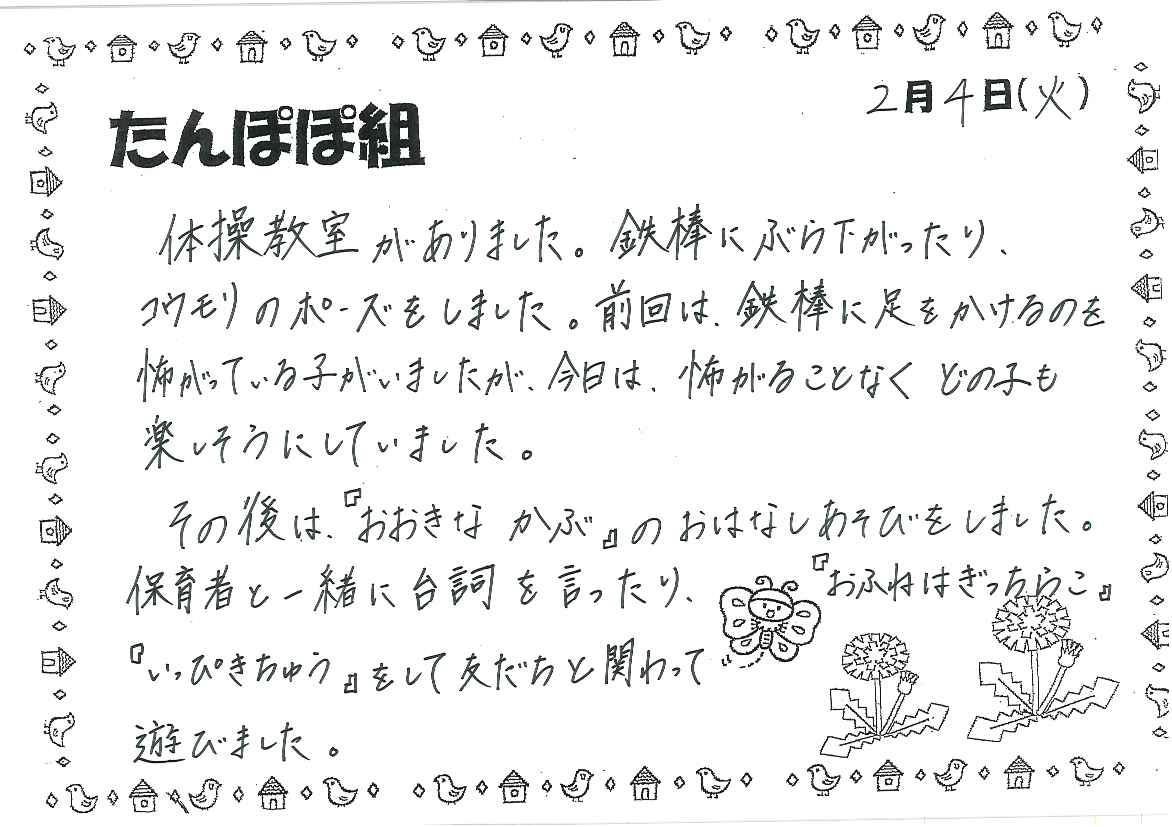 2月4日(火)
たんぽぽ組
体操教室がありました。鉄棒にぶら下がったり、
コウモリのポーズをしました。前回は、鉄棒に足をかけるのを
怖がっている子がいましたが、今日は、怖がることなくどの子も
楽しそうにしていました。
その後は、『おおきな かぶ』のおはなしあそびをしました。
保育者と一緒に台詞を言ったり、『おふねはぎっちらこ』
『いっぴきちゅう』をして友だちと関わって
遊びました。